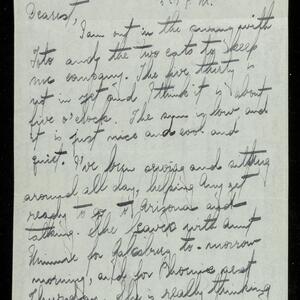 Dearest,
I am out in the swing with
Tito and the two cats to keep
me company. The five thirty is
not in yet and I think it is about
five o'clock. The sun is low and
it is just nice and cool and
quiet. I've been sewing and sitting
around all day, helping Amy get
ready to go to Arizona and
talking. She leaves with Aunt
Minnie for to-morrow
morning, and for Phoenix next
She is really thinking